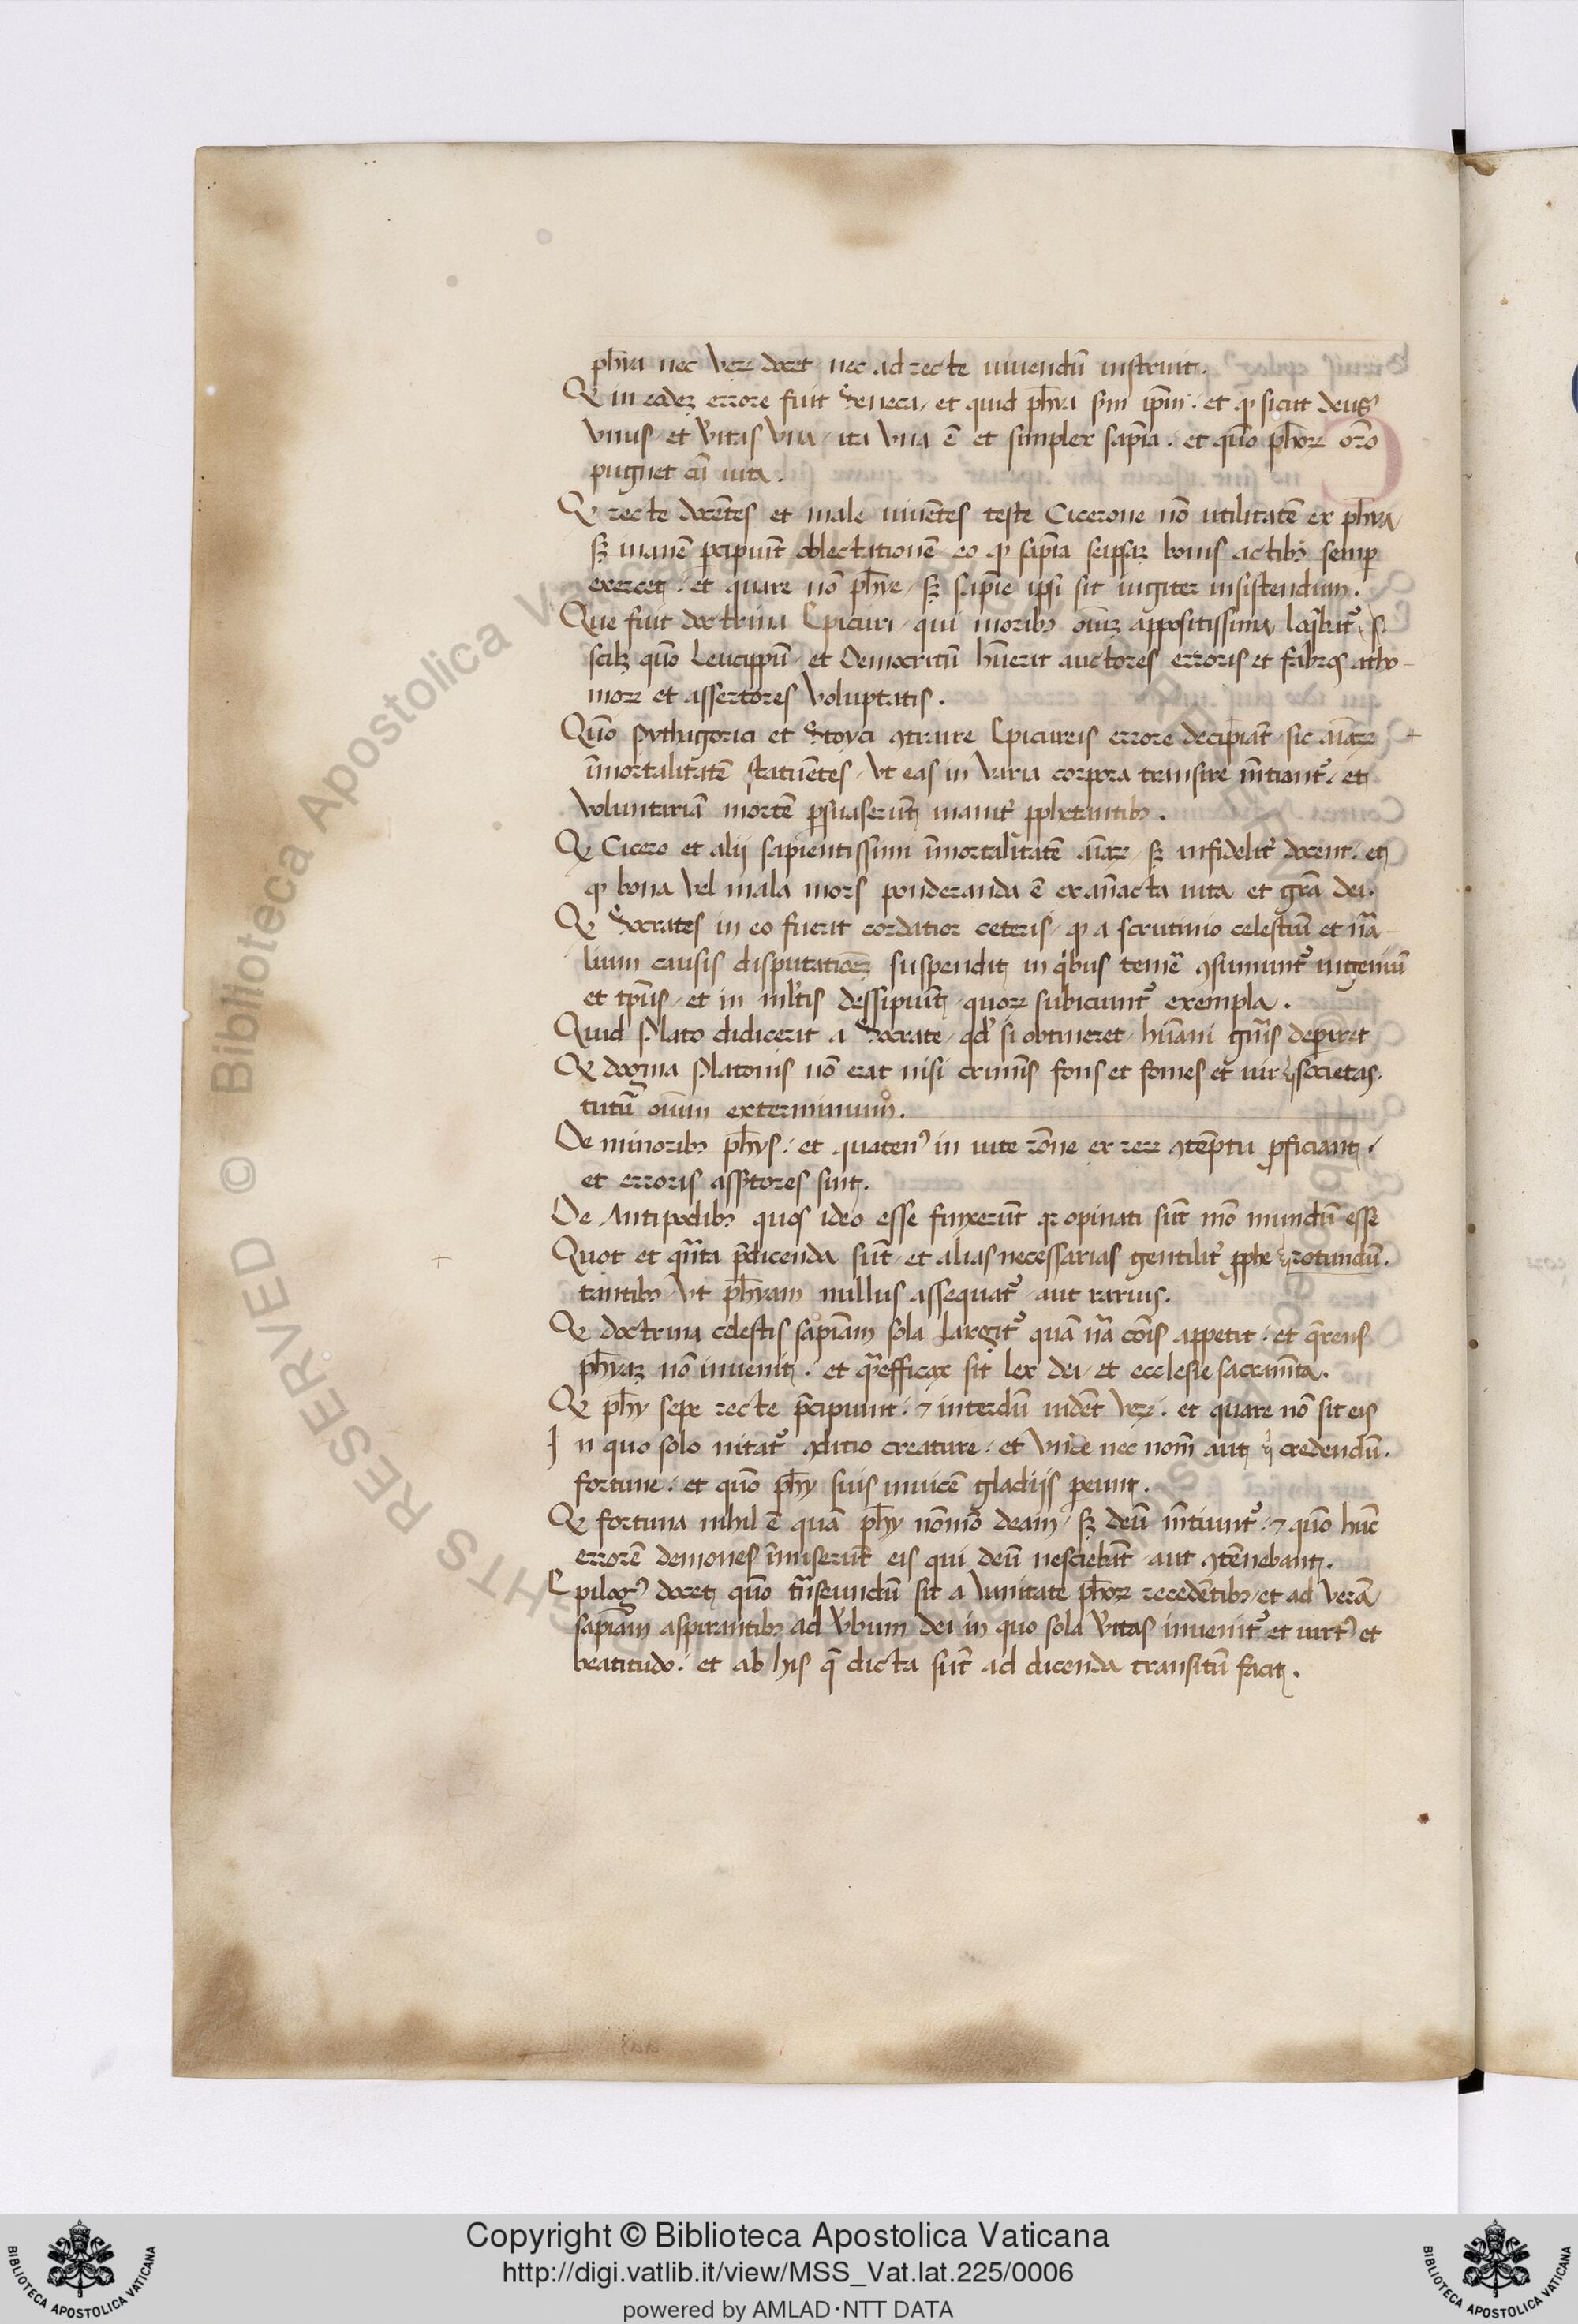 ph̄ia nec veꝝ docet nec ad recte uiuendū instruit.
Ꝙ in eodeꝫ errore fuit Seneca / et quid ph̄ia sm̄ ip̄m. et ꝙ sicut deus
vnus / et v̄itas vna / ita vna ē et simplex sap̄ia. et quō ph̄oꝝ or̄o
pugnet cū uita.
Ꝙ recte docētes et male uiuētes teste Cicerone nō utilitatē ex ph̄ia /
sꝫ inanē ꝑcipiūt oblectationē eo ꝙ sap̄ia seipsaꝫ bonis actibꝫ semꝑ
exercet. et quare nō ph̄ie / sꝫ sap̄ie ipsi sit iugiter insistendum.
Que fuit doctrina Epicuri / qui moribꝫ oīuꝫ appositissima
scilꝫ quō Leucippū / et Democritū hūerit auctores erroris et atho-
moꝝ et assertores voluptatis.
Quō Pythagorici et Stoyci ꝯtrario Epicureis errore decipiāt / sic aīaꝝ
īmortalitatē statuētes / vt eas in varia corpora transire et
voluntariā mortē ꝑsuaserūt inanit̄ ꝓphetantibꝫ.
Ꝙ Cicero et alij sapientissimi īmortalitatē aīaꝝ / sꝫ infidelit̄ docent. et
ꝙ bona vel mala mors ponderanda ē ex anacta uita et gr̄a dei.
Ꝙ Socrates in eo fuerit cordatior ceteris / ꝙ a scrutinio celestiū et nā-
lium causis disputationeꝫ suspendit / in qͥbus temē ꝯsumunt᷑ ingenium
et tp̄us / et in ml̄tis dessipiūt / quoꝝ subiciunt᷑ exempla.
Quid Plato didicerit a Socrate / qd̓ si obtineret / hūani gn̄is deperiret
Ꝙ dogma Platonis nō erat nisi crimīs fons et fomes et uir societas.
tutū oīum exterminium.
De minoribꝫ ph̄ys. et quaten᷒ in uite rōne ex reꝝ ꝯtēptu ꝓficiant.
et erroris ass̄tores sint.
De Antipodibꝫ quos ideo esse finxerūt qꝛ opinati sūt mō mundū esse
Quot et qn̄ta p̄dicenda sūt / et alias necessarias gentilit̄ ꝓphe rotundū.
tantibꝫ / vt ph̄iam nullus assequat᷑ aut rarius.
Ꝙ doctrina celestis sapīam sola largit᷑ quā nā cōis appetit. et q̄rens
ph̄iaꝫ nō inuenit. et qͣ efficax sit lex dei / et ecclesie sacram̄ta.
Ꝙ ph̄y sepe recte p̄cipiunt. ⁊ interdū uidēt veꝝ. et quare nō sit eis
In quo solo nitat᷑ ꝯditio creature. et vnde nec nom̄ aut credendū.
fortune. et quō ph̄y suis inuicē gladijs pereunt.
Ꝙ fortuna nihil ē quā ph̄y deam / sꝫ deū m̄tiunt᷑. ⁊ quō hūc
errorē demones īmiserūt eis qui deū nesciebāt aut ꝯtēnebant.
Epilog᷒ docet quō trāseundū sit a vanitate ph̄oꝝ recedētibꝫ et ad verā
sapīam aspirantibꝫ ad v̄bum dei in quo sola v̄itas inuenit᷑ et uirt᷒ et
beatitudo. et ab his q̄ dicta sūt ad dicenda transitū facit.
© Biblioteca Apostolica Vaticana
RIGHTS RESERVED
Copyright © Biblioteca Apostolica Vaticana
http://digi.vatlib.it/view/MSS_Vat.lat.225/0006
powered by AMLAD·NTT DATA
BIBLIOTECA APOSTOLICA VATICANA
BIBLIOTECA APOSTOLICA VATICANA